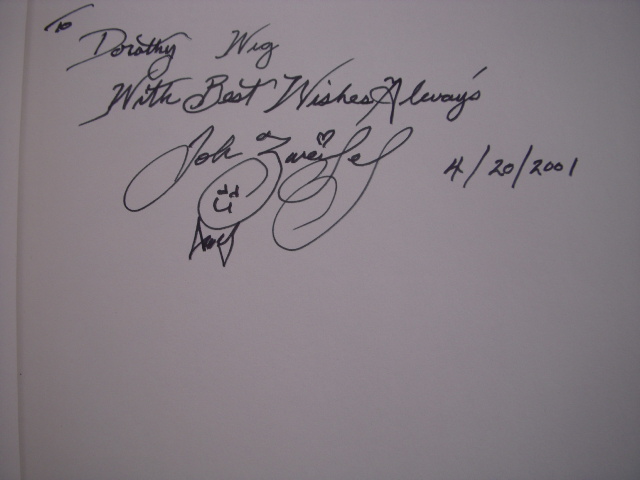 To
Dorothy Wig
With Best Wishes Always
John Zweifel 4/20/2001